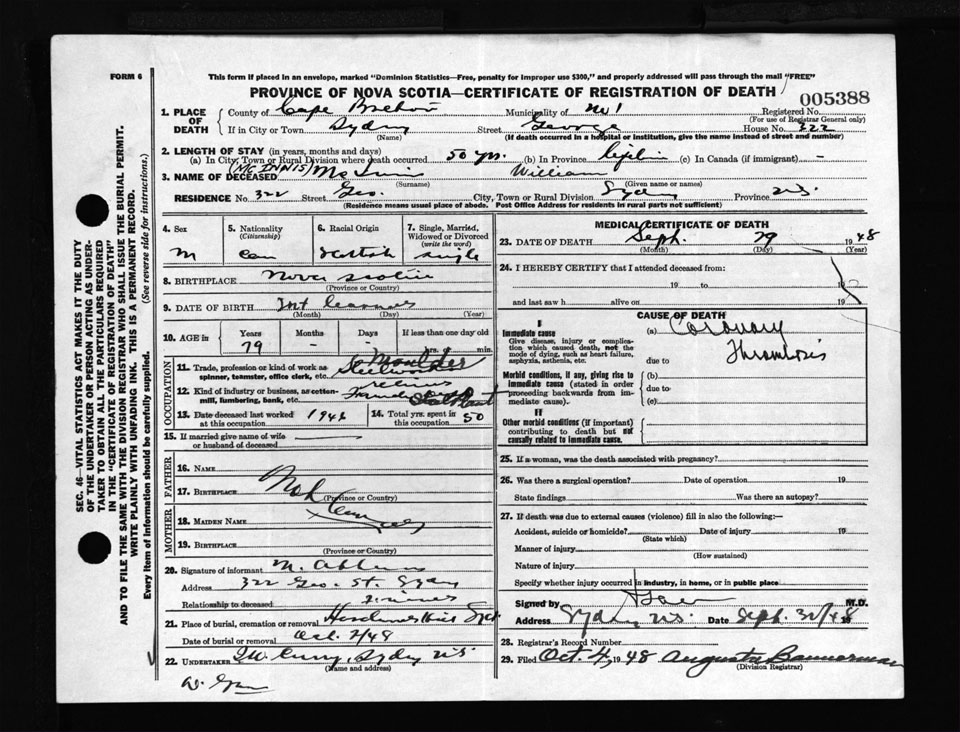 FORM 6
This form if placed in an envelope, marked "Dominion Statistics—Free, penalty for improper use $300," and properly addressed will pass through the mail "FREE"
PROVINCE OF NOVA SCOTIA—CERTIFICATE OF REGISTRATION OF DEATH
005388
1. PLACE OF DEATH
County of Cape Breton Municipality of Registered No.
(For use of Registrar General only)
If in City or Town Sydney Street George House No. 322
(Name) (If death occurred in a hospital or institution, give the name instead of street and number)
2. LENGTH OF STAY (in years, months and days)
(a) In City, Town or Rural Division where death occurred 50 yrs. (b) In Province life (c) In Canada (if immigrant) -
3. NAME OF DECEASED (MC INNIS) McInnis William
(Surname) (Given name or names)
RESIDENCE No. 322 Street Geo. City, Town or Rural Division Sydney Province N.S.
(Residence means usual place of abode. Post Office Address for residents in rural parts not sufficient)
4. Sex
M
5. Nationality
(Citizenship)
Can
6. Racial Origin
Scottish
7. Single, Married, Widowed or Divorced
(write the word)
single
8. BIRTHPLACE Nova Scotia
(Province or County)
9. DATE OF BIRTH
(Month) (Day) (Year)
10. AGE in
Years Months Days If less than one day old
79 - - hrs. or min.
OCCUPATION
11. Trade, profession or kind of work as spinner, teamster, office clerk, etc. Moulder
12. Kind of industry or business, as cotten-mill, lumbering, bank, etc. Steel Plant
13. Date deceased last worked at this occupation 1946
14. Total yrs. spent in this occupation 50
15. If married give name of wife or husband of deceased
FATHER
16. NAME
17. BIRTHPLACE Not
(Province or Country)
MOTHER
18. MAIDEN NAME
19. BIRTHPLACE
(Province or Country)
20. Signature of informant M.
Address 322 Geo. St. Sydney
Relationship to deceased
21. Place of burial, cremation or removal Syd
Date of burial or removal Oct. 2/48
22. UNDERTAKER Curry, Sydney N.S.
(Name and address)
MEDICAL CERTIFICATE OF DEATH
23. DATE OF DEATH Sept. 29 1948
(Month) (Day) (Year)
24. I HEREBY CERTIFY that I attended deceased from:
19 to 19
and last saw h alive on 19
CAUSE OF DEATH
I
Immediate cause
Give disease, injury or complication which caused death, not the mode of dying, such as heart failure, asphyxia, asthenia, etc.
(a) Coronary
due to Thrombosis
Morbid conditions, if any, giving rise to immediate cause (stated in order proceeding backwards from immediate cause).
(b)
due to
(c)
II
Other morbid conditions (if important) contributing to death but not causally related to immediate cause.
25. If a woman, was the death associated with pregnancy?
26. Was there a surgical operation? Date of operation 19
State findings Was there an autopsy?
27. If death was due to external causes (violence) fill in also the following:—
Accident, suicide or homicide? Date of injury 19
(State which)
Manner of injury
(How sustained)
Nature of injury
Specify whether injury occurred in industry, in home, or in public place
Signed by M.D.
Address Sydney N.S. Date Sept. 30/48 19
28. Registrar's Record Number
29. Filed Oct. 4, 1948 Augusta Bannerman
(Division Registrar)
SEC. 46—VITAL STATISTICS ACT MAKES IT THE DUTY
OF THE UNDERTAKER OR PERSON ACTING AS UNDER-
TAKER TO OBTAIN ALL THE PARTICULARS REQUIRED
IN THE "CERTIFICATE OF REGISTRATION OF DEATH"
AND TO FILE THE SAME WITH THE DIVISION REGISTRAR WHO SHALL ISSUE THE BURIAL PERMIT.
WRITE PLAINLY WITH UNFADING INK. THIS IS A PERMANENT RECORD.
Every item of information should be carefully supplied. (See reverse side for instructions.)